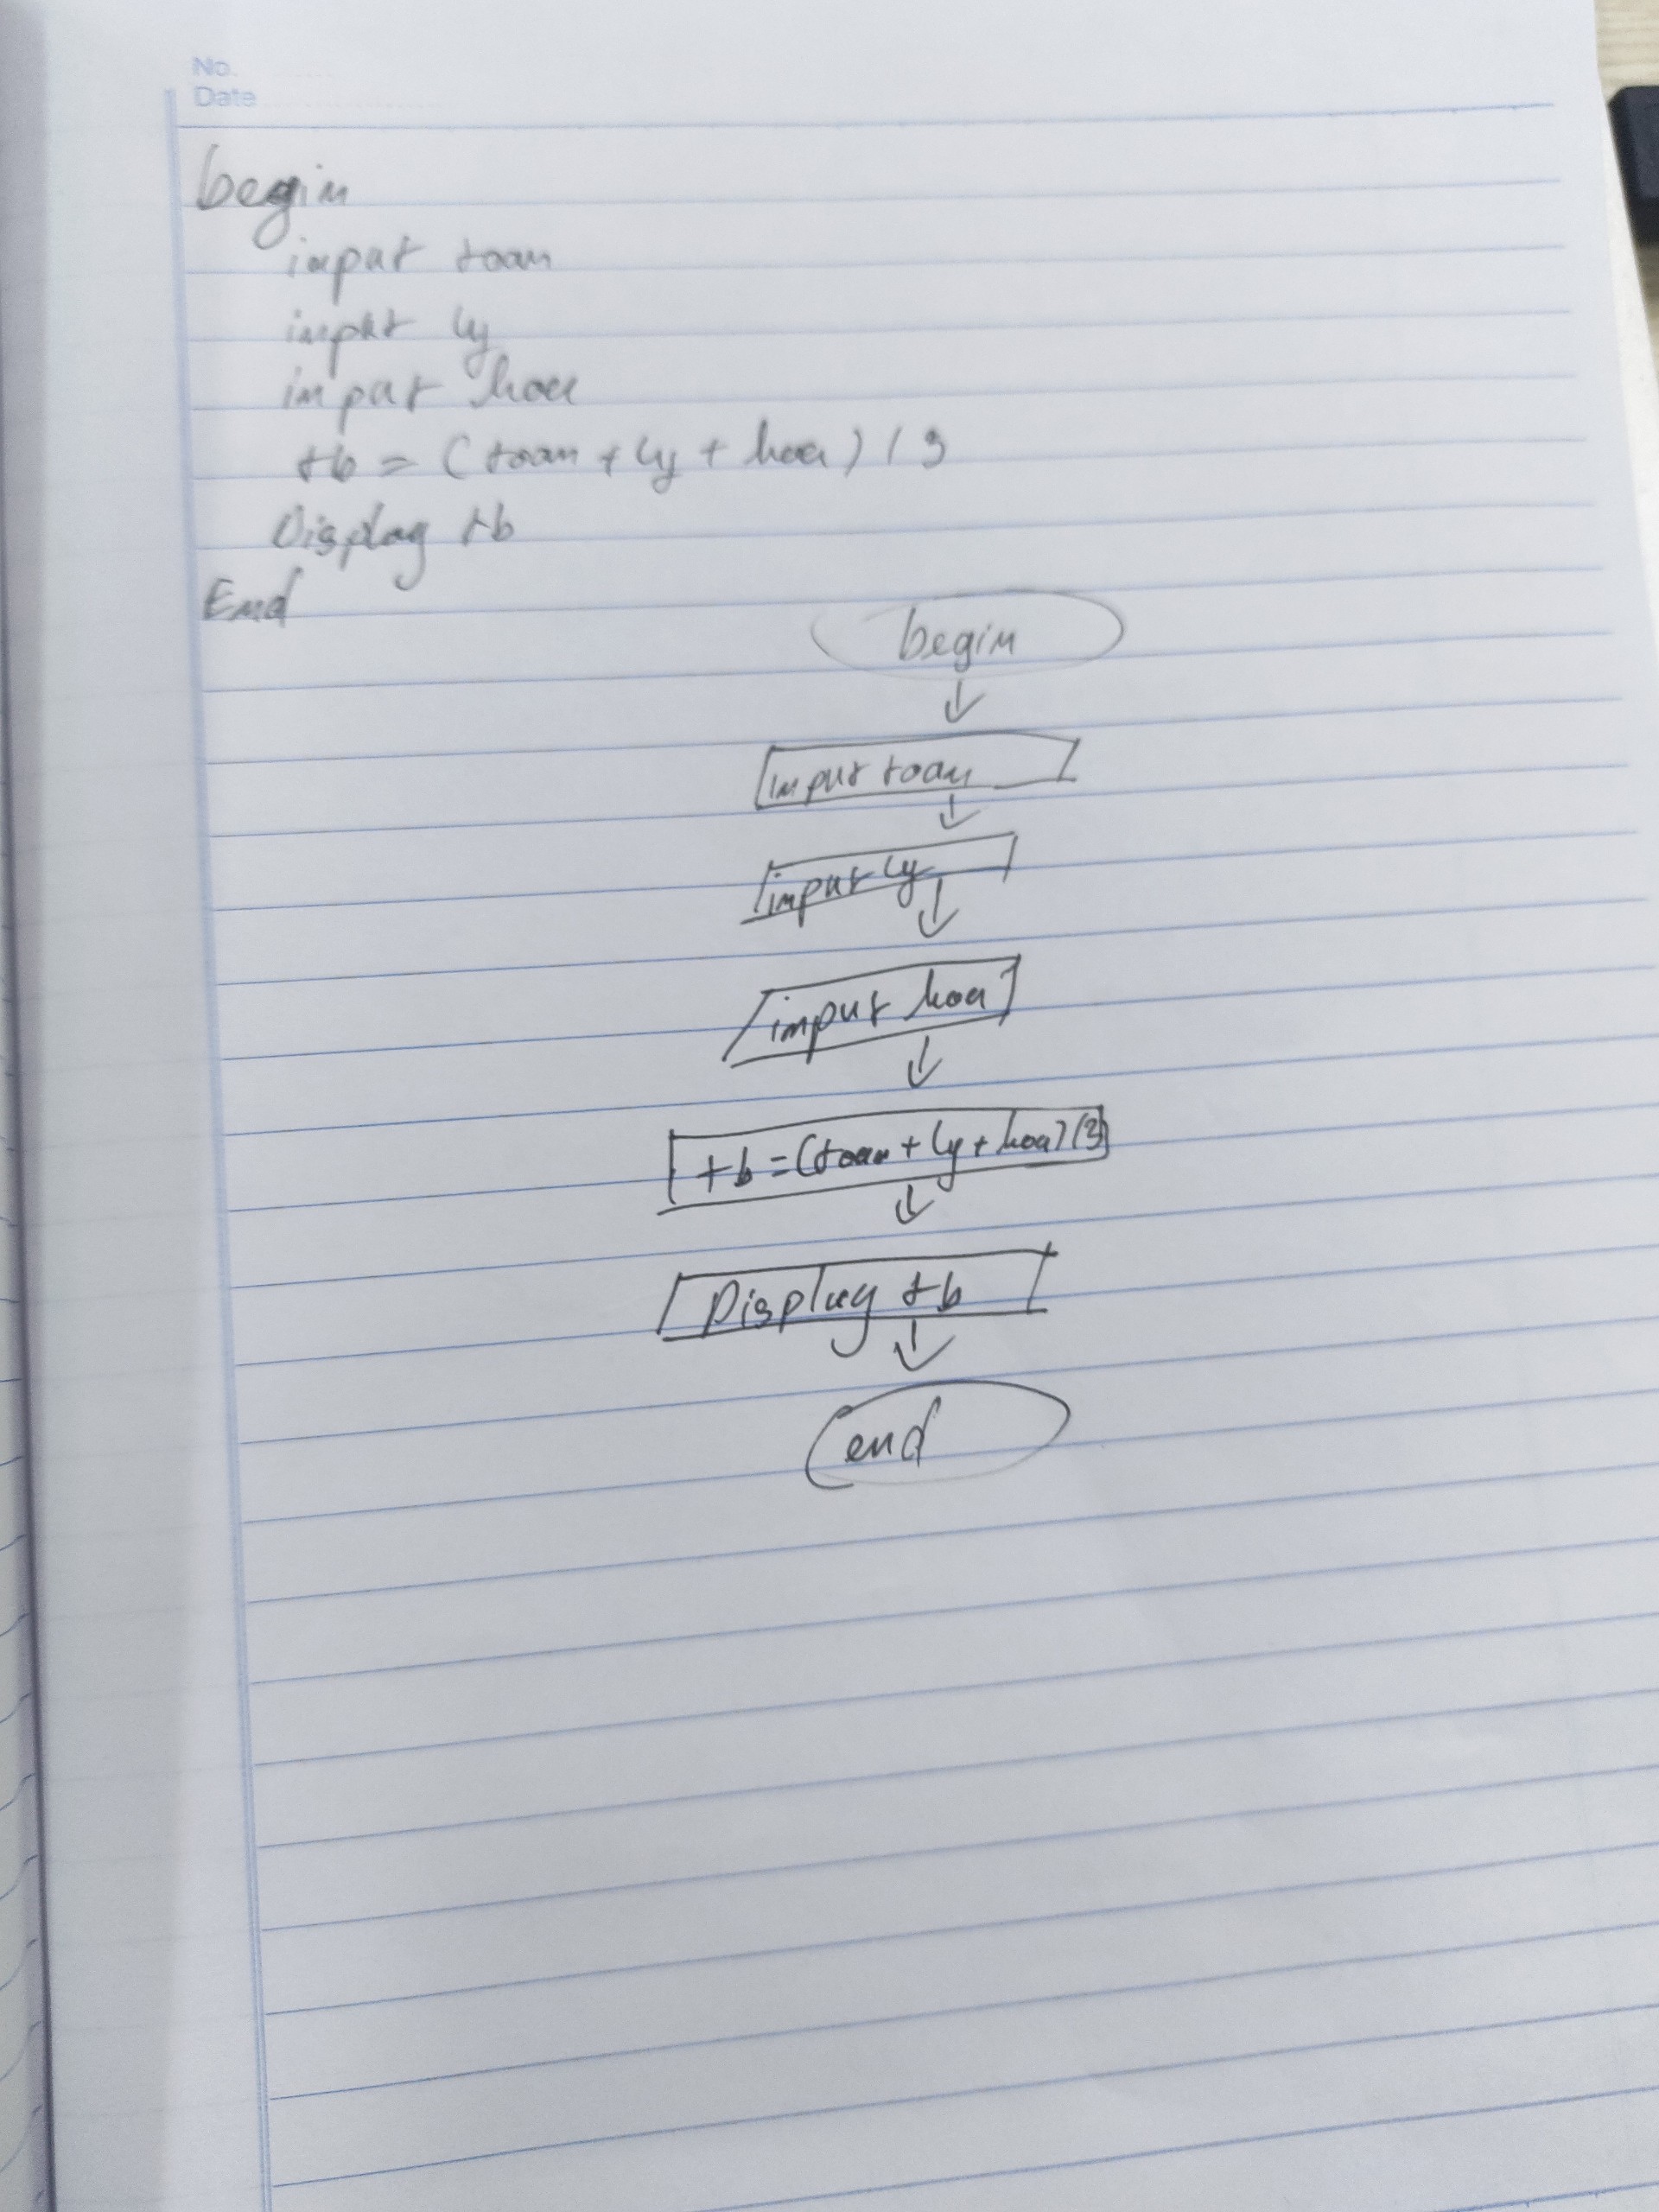 No.
Date
begin
input toan
input ly
input hoa
tb = (toan + ly + hoa) / 3
Display tb
End
begin
input toan
input ly
input hoa
tb = (toan + ly + hoa) / 3
Display tb
end